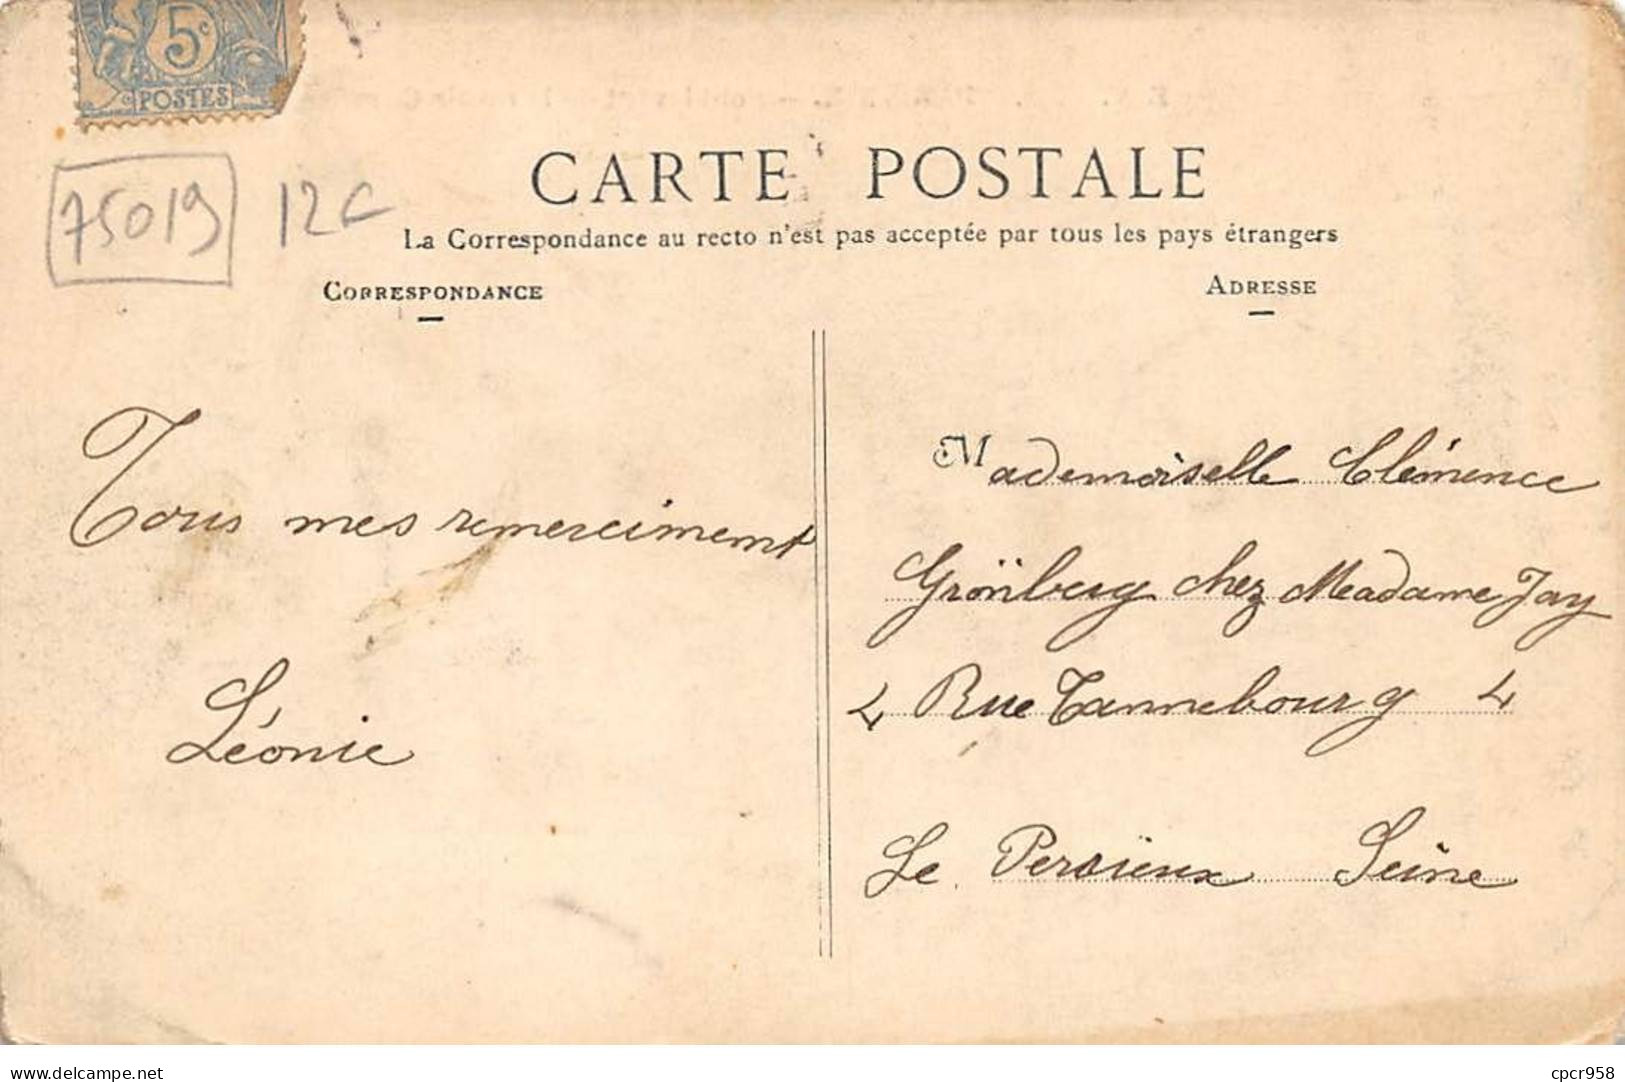 5c
POSTES
75019 12€
CARTE POSTALE
La Correspondance au recto n'est pas acceptée par tous les pays étrangers
CORRESPONDANCE
ADRESSE
Tous mes remerciment
Léonie
Mademoiselle Clémence
Grönberg chez Madame Jay
4 Rue Tannebourg 4
Le Persieux Seine
delcampe.net
cpcr958